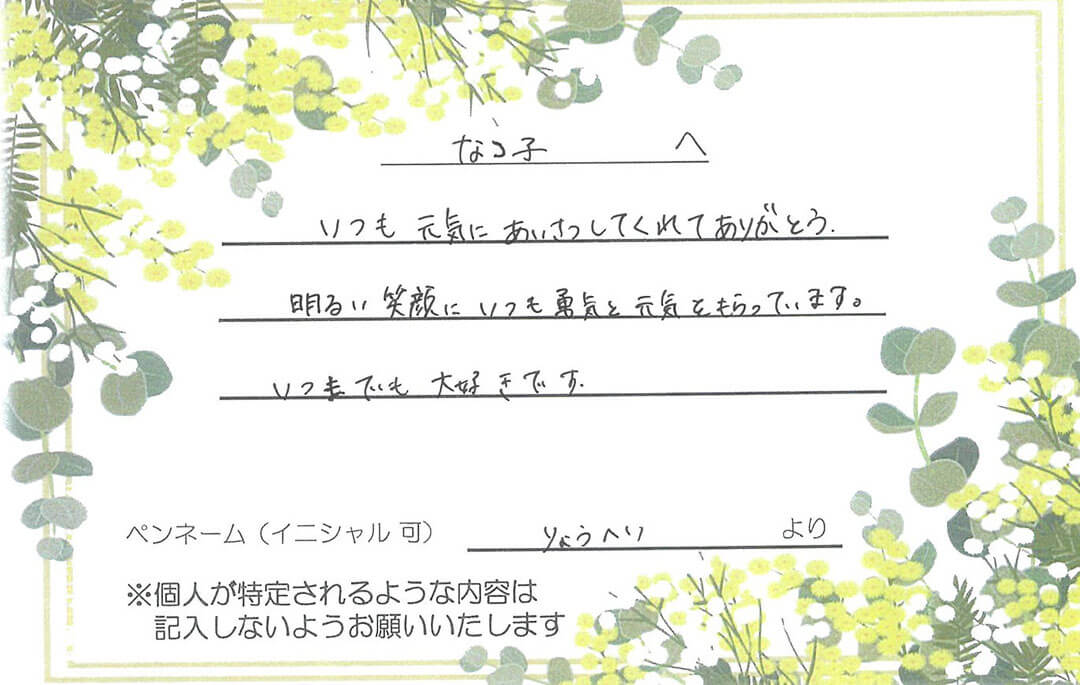 なつ子 へ
いつも 元気に あいさつしてくれてありがとう.
明るい 笑顔に いつも勇気と 元気をもらっています。
いつまでも 大好きです.
ペンネーム（イニシャル 可） りょうへい より
※個人が特定されるような内容は
記入しないようお願いいたします